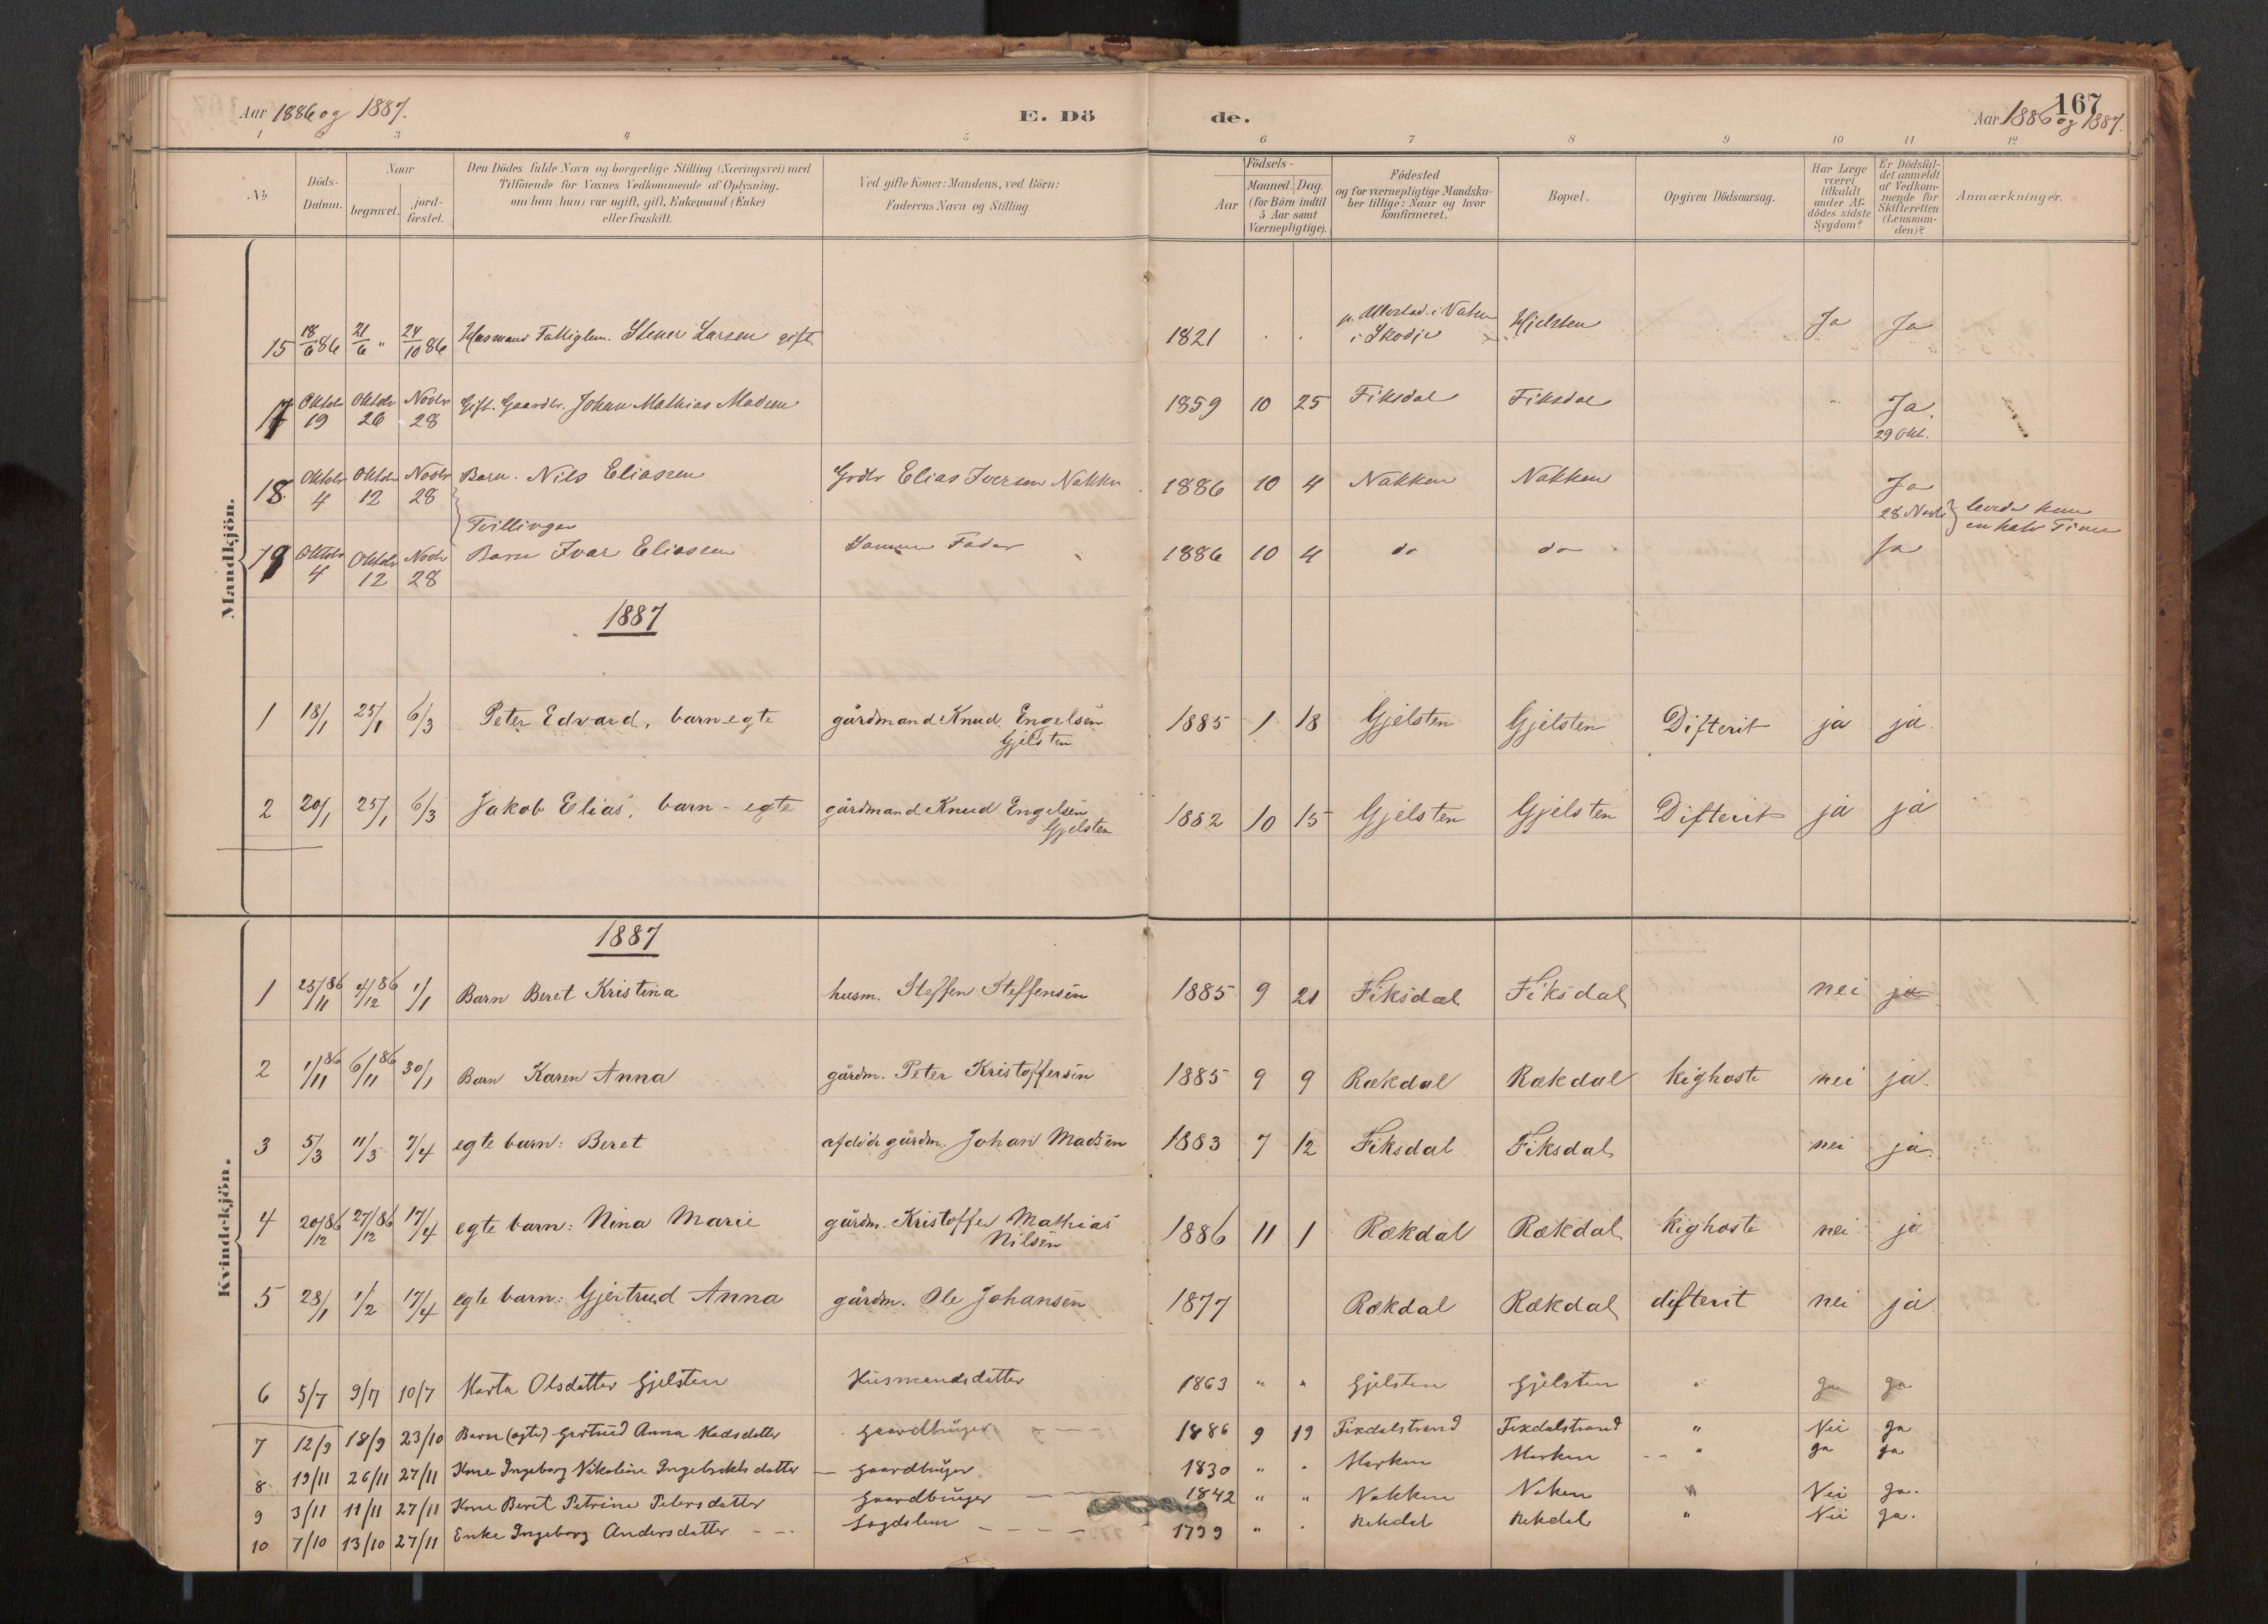 Aar 1886 og 1887. E. Dö de. Aar 1886 og 1887. 167
1 2 3 4 5 6 7 8 9 10 11 12
No
Döds-Datum.
Naar
begravet.
jord-fæstet.
Den Dödes fulde Navn og borgerlige Stilling (Næringsvei) med
Tilföiende for Voxnes Vedkommende af Oplysning,
om han (hun) var ugift, gift, Enkemand (Enke)
eller fraskilt.
Ved gifte Koner: Mandens, ved Börn:
Faderens Navn og Stilling.
Födsels-
Aar
Maaned. Dag
(for Börn indtil
5 Aar samt
Værnepligtige).
Födested
og for værnepligtige Mandska-
ber tillige: Naar og hvor
konfirmeret.
Bopæl.
Opgiven Dödsaarsag.
Har Læge
været
tilkaldt
under Af-
dödes sidste
Sygdom?
Er Dödsfal-
det anmeldt
af Vedkom-
mende for
Skifteretten
(Lensman-
den)?
Anmærkninger.
Mandkjön.
15 18/6 86 21/6 " 24/10 86 Husmand Fattiglem. Stener Larsen gift 1821 . . i Skodje Hjelsten Ja Ja
17 Oktbr 19 Oktbr 26 Novbr 28 Gift. Gaardbr. Johan Mathias Madsen 1859 10 25 Fiksdal Fiksdal Ja. 29 Okt.
18 Oktbr 4 Oktbr 12 Novbr 28 Barn. Nils Eliassen Grdbr Elias Iversen Nakken 1886 10 4 Nakken Nakken Ja 28 Novbr } levede kun
Tvillinger en halv Time
19 Oktbr 4 Oktbr 12 Novbr 28 Barn Ivar Eliasen Samme Fader 1886 10 4 do do Ja
1887
1 18/1 25/1 6/3 Peter Edvard, barn egte gårdmand Knud Engelsen Gjelsten 1885 1 18 Gjelsten Gjelsten Difterit ja ja
2 20/1 25/1 6/3 Jakob Elias, barn - egte gårdmand Knud Engelsen Gjelsten 1882 10 15 Gjelsten Gjelsten Difterit ja ja
Kvindekjön.
1887
1 25/11 86 4/12 86 1/1 Barn Beret Kristina husm. Steffen Steffensen 1885 9 21 Fiksdal Fiksdal nei ja
2 1/11 86 6/11 86 30/1 Barn Karen Anna gårdm. Peter Kristoffersen 1885 9 9 Rækdal Rækdal kighoste nei ja.
3 5/3 11/3 7/4 egte barn: Beret afdöde gårdm. Johan Madsen 1883 7 12 Fiksdal Fiksdal nei ja.
4 20/12 86 27/12 86 17/4 egte barn: Nina Marie gårdm. Kristoffer Mathias Nilsen 1886 11 1 Rækdal Rækdal kighoste nei ja
5 28/1 1/2 17/4 egte barn: Gjertrud Anna gårdm. Ole Johansen 1877 Rækdal Rækdal difterit nei ja
6 5/7 9/7 10/7 Marta Olsdatter Gjelsten Husmandsdatter 1863 " " Gjelsten Gjelsten " Ja Ja
7 12/9 18/9 23/10 Barn (egte) Gertrud Anna Madsdatter Gaardbruger 1886 9 19 Fixdalstrand Fixdalstrand " Nei Ja
8 19/11 26/11 27/11 Kone Ingeborg Nikoline Ingebrektsdatter — Gaardbruger 1830 " " Marken Marken " Ja Ja
9 3/11 11/11 27/11 Kone Beret Petrine Petersdatter Gaardbruger 1842 " " Nakken Naken " Nei Ja.
10 7/10 13/10 27/11 Enke Ingeborg Andersdatter Lægdslem 1799 " " Rekdal Rekdal " Nei Ja.